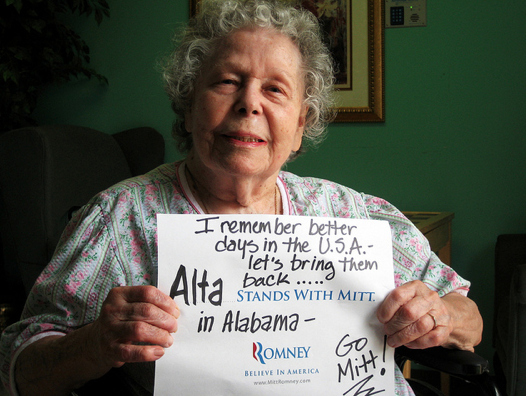 I remember better
days in the U.S.A.-
let's bring them
back.....
Alta STANDS WITH MITT.
in Alabama-
ROMNEY
BELIEVE IN AMERICA
www.MittRomney.com
Go
Mitt!